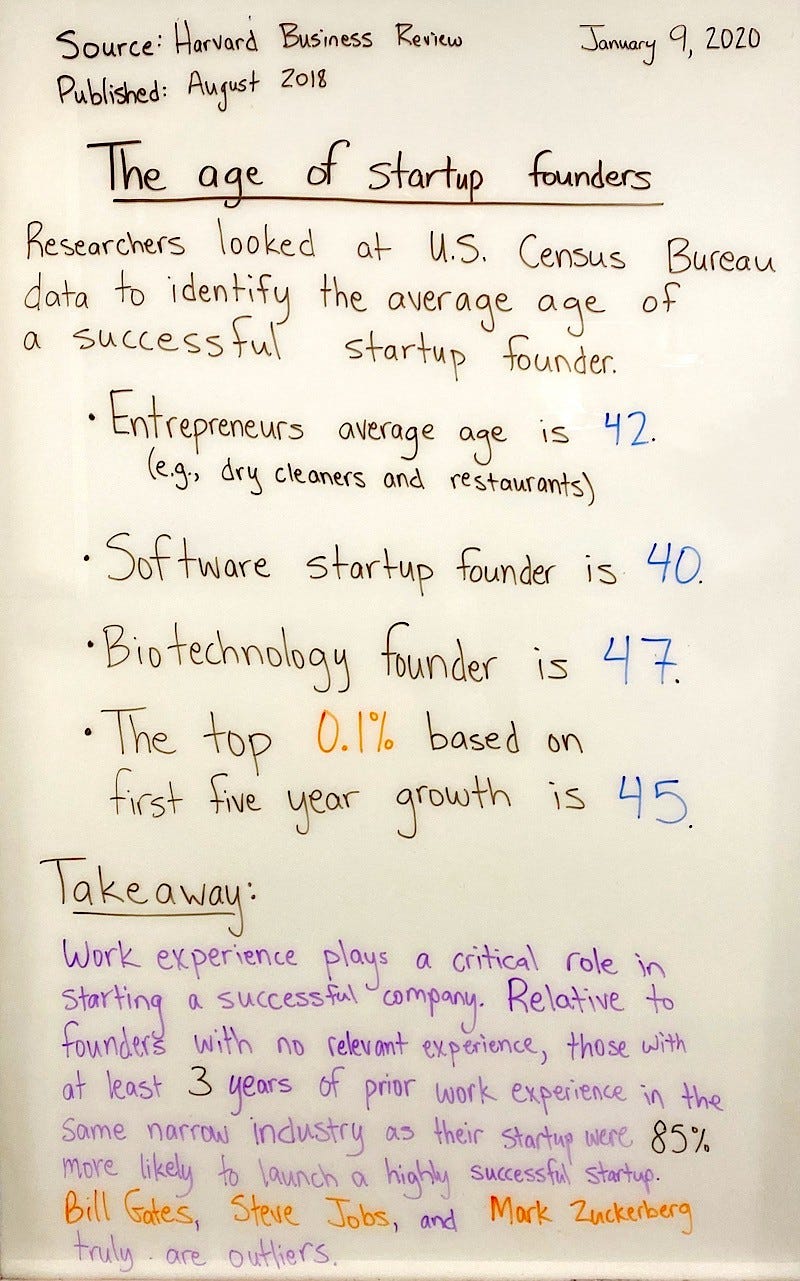 Source: Harvard Business Review
January 9, 2020
Published: August 2018
The age of startup founders
Researchers looked at U.S. Census Bureau
data to identify the average age of
a successful startup founder.
• Entrepreneurs average age is 42.
(e.g., dry cleaners and restaurants)
• Software startup founder is 40.
• Biotechnology founder is 47.
• The top 0.1% based on
first five year growth is 45.
Takeaway:
Work experience plays a critical role in
starting a successful company. Relative to
founders with no relevant experience, those with
at least 3 years of prior work experience in the
same narrow industry as their startup were 85%
more likely to launch a highly successful startup.
Bill Gates, Steve Jobs, and Mark Zuckerberg
truly are outliers.